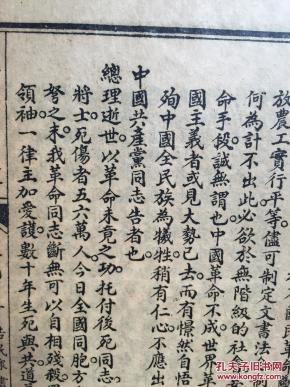 放農工實行平等儘可制定文書法
何為計不出此必欲於無階級的社
命手段誠無謂也中國革命不成世界
國主義者或見大勢已去而有憬然自悟
殉中國全民族為犧牲稍有仁心不應出
中國共產黨同志告者也
總理逝世以革命未竟之功托付後死同志
將士死傷者五六萬人今日全國同胞方
努之末我革命同志斷無可以自相殘殺
領袖一律主加愛護數十年生死與共道
孔夫子旧书网